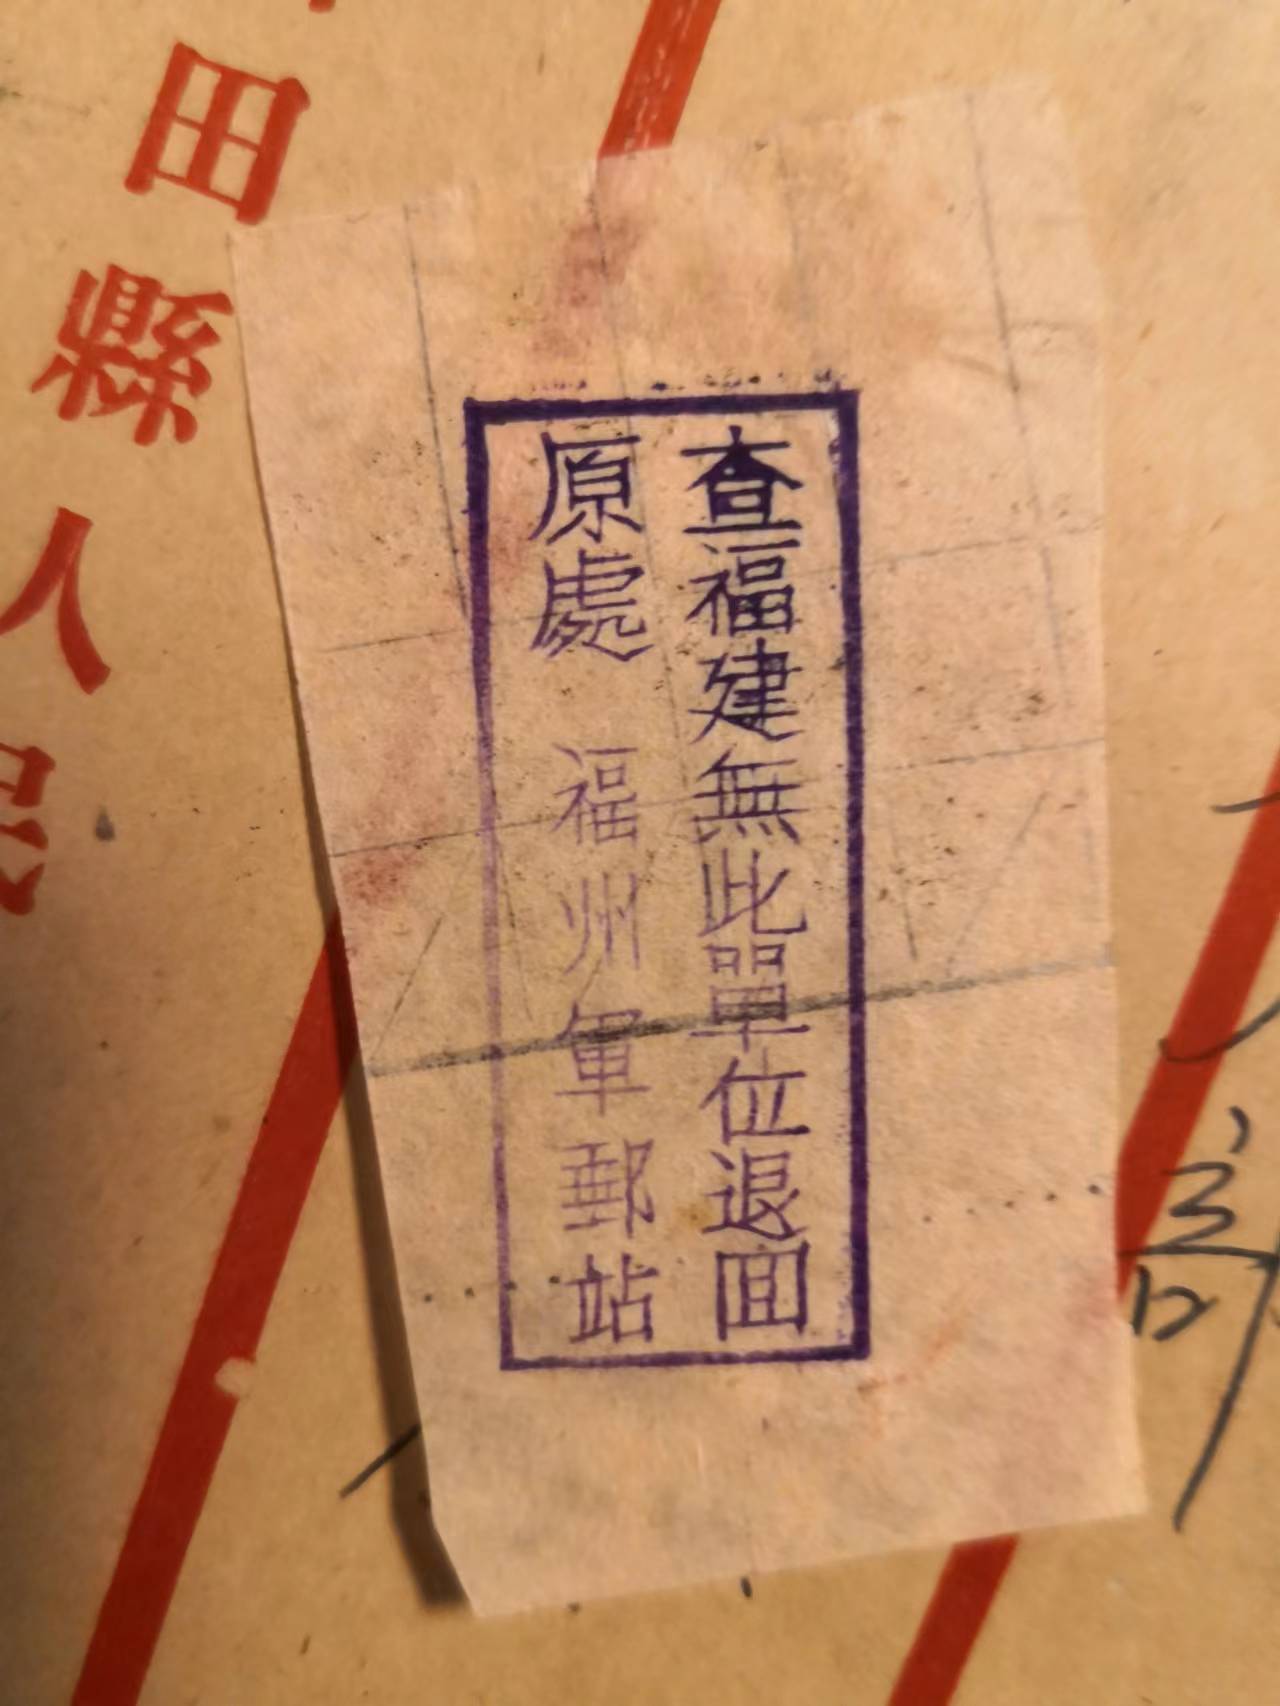 查福建無此單位退囬
原處 福州軍郵站
田縣人民
部